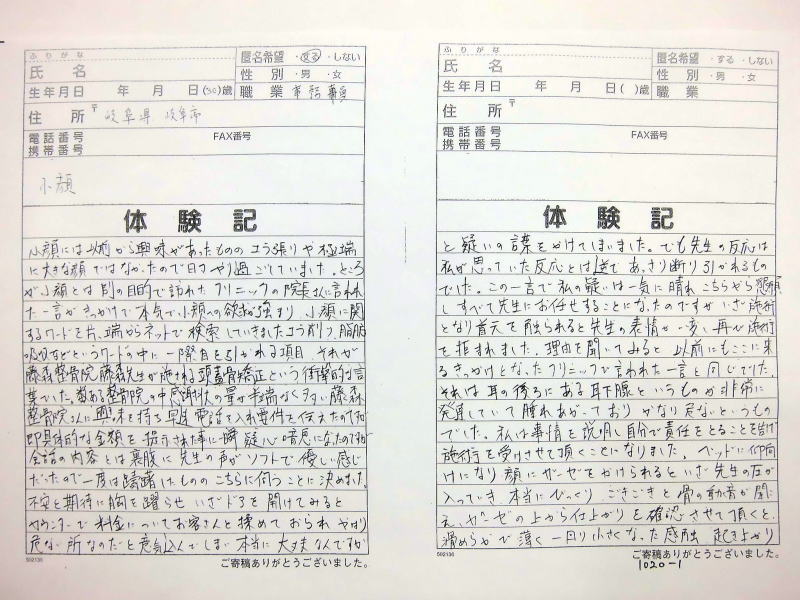 ふりがな
氏 名
匿名希望 ・する ・しない
性 別 ・男 ・女
生年月日 年 月 日(30)歳
職 業 事務員
住 所 〒 岐阜県 岐阜市
電話番号 FAX番号
携帯番号
小顔
体 験 記
小顔には以前から興味があったもののコラ張りや極端
に大きな顔ではなかったので日々やり過ごしていました。ところ
が小顔とは別の目的で訪れたクリニックの院長さんに言われ
た一言がきっかけで本気で小顔への欲求が強まり、小顔に関
するワードを片っ端からネットで検索していきましたコラ削り、脂肪
吸引などというワードの中に一際目を引かれる項目、それが
藤森整骨院藤森先生が施される頭蓋骨矯正という衝撃的な言
葉でした。数ある整骨院の中感謝状の量が半端なく多い藤森
整骨院さんに興味を持ち早速電話を入れ要件を伝えたのですが
即具体的な金額を提示された事に一瞬疑心暗鬼になったのですが
会話の内容とは裏腹に先生の声がソフトで優しい感じ
だったので一度は躊躇したもののこちらに伺うことに決めました。
不安と期待に胸を躍らせいざドアを開けてみると
カウンターで料金についてお客さんと揉めておられやはり
危ない所なのだと意気込んでしまい本当に大丈夫なんですか
502136
ご寄稿ありがとうございました。
ふりがな
氏 名
匿名希望 ・する ・しない
性 別 ・男 ・女
生年月日 年 月 日( )歳
職 業
住 所 〒
電話番号 FAX番号
携帯番号
体 験 記
と疑いの言葉をかけてしまいました。でも先生の反応は
私が思っていた反応とは逆であっさり断り引かれるもの
でした。この一言で私の疑いは一気に晴れこちらから懇願
しすべて先生にお任せすることになったのですがいざ施術
となり首元を触られると先生の表情が一変し再び施術
を拒まれました。理由を聞いてみると以前にもここに来
るきっかけとなったクリニックで言われた一言と同じでした。
それは耳の後ろにある耳下腺というものが非常に
発達していて腫れあがっておりかなり危ないというもの
でした。私は事情を説明し自分で責任をとることを告げ
施術を受けさせて頂くことになりました。ベッドに仰向
けになり顔にガーゼをかけられるといざ先生の圧が
入っていき、本当にびっくり、ごきごきと骨の動く音が聞こ
え、ガーゼの上から仕上がりを確認させて頂くと、
滑めらかで薄く一回り小さくなった感触、起き上がり
502136
ご寄稿ありがとうございました。
1020-1